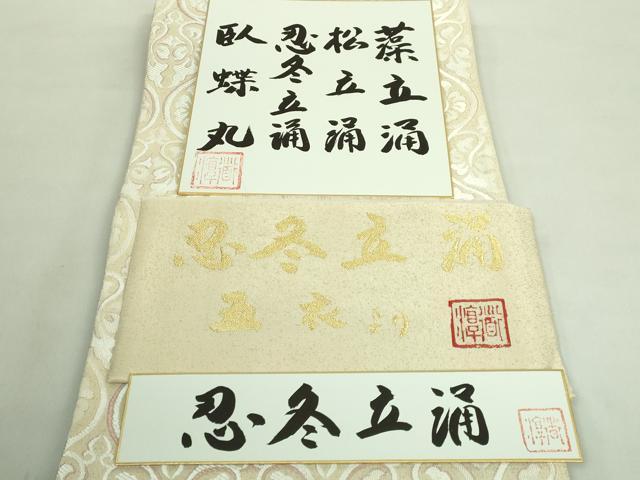 藻立涌
松立涌
忍冬立涌
臥蝶丸
忍冬立涌
五衣より
忍冬立涌